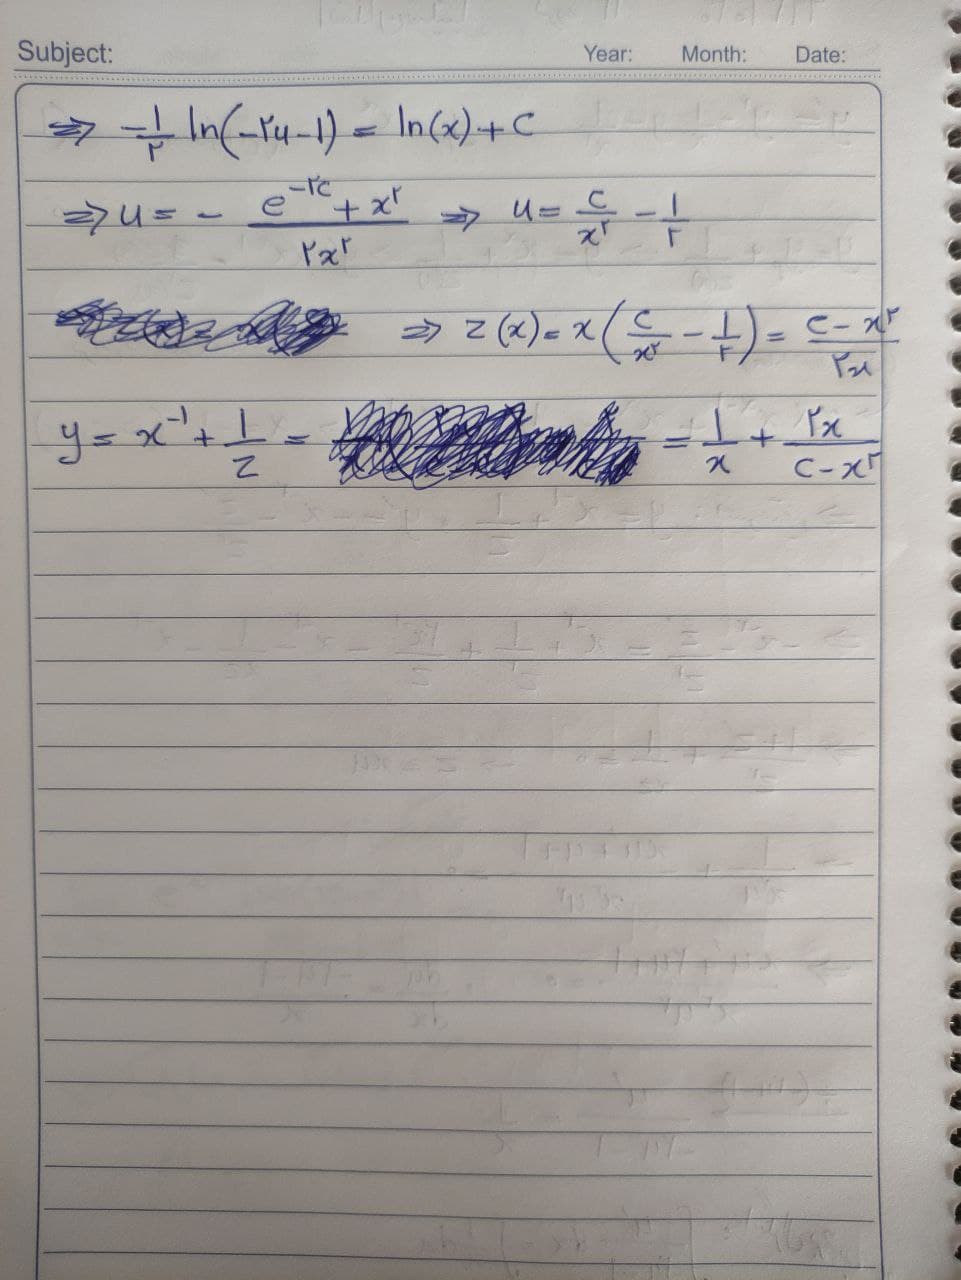 Subject: Year: Month: Date:
⇒ -1/۲ ln(-۲u-1) = ln(x) + C
⇒ u = - (e^(-۲c) + x^۲)/(۲x^۲) ⇒ u = c/x^۲ - 1/۲
⇒ z(x) = x(c/x^۲ - 1/۲) = (c - x^۲)/(۲x)
y = x^(-1) + 1/z = = 1/x + ۲x/(c - x^۲)